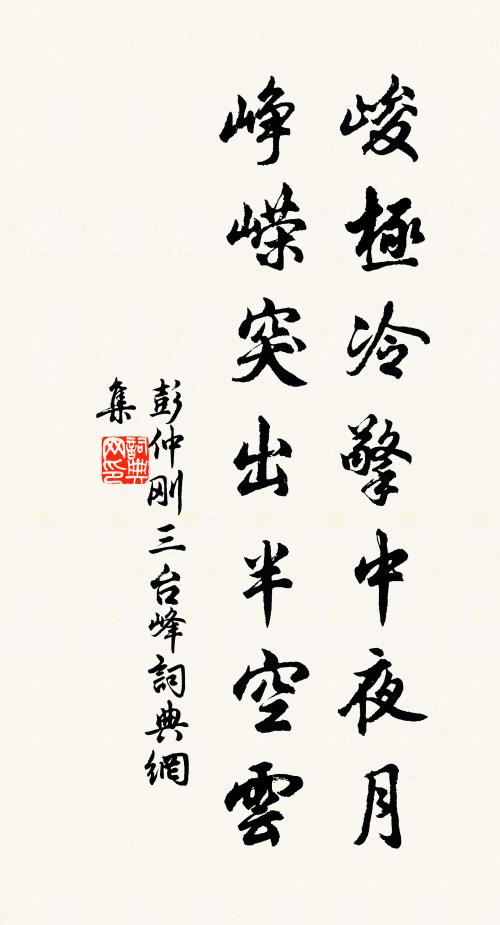 峻極冷擎中夜月
崢嶸突出半空雲
彭仲刚三台峰詞典網
集
詞典網印